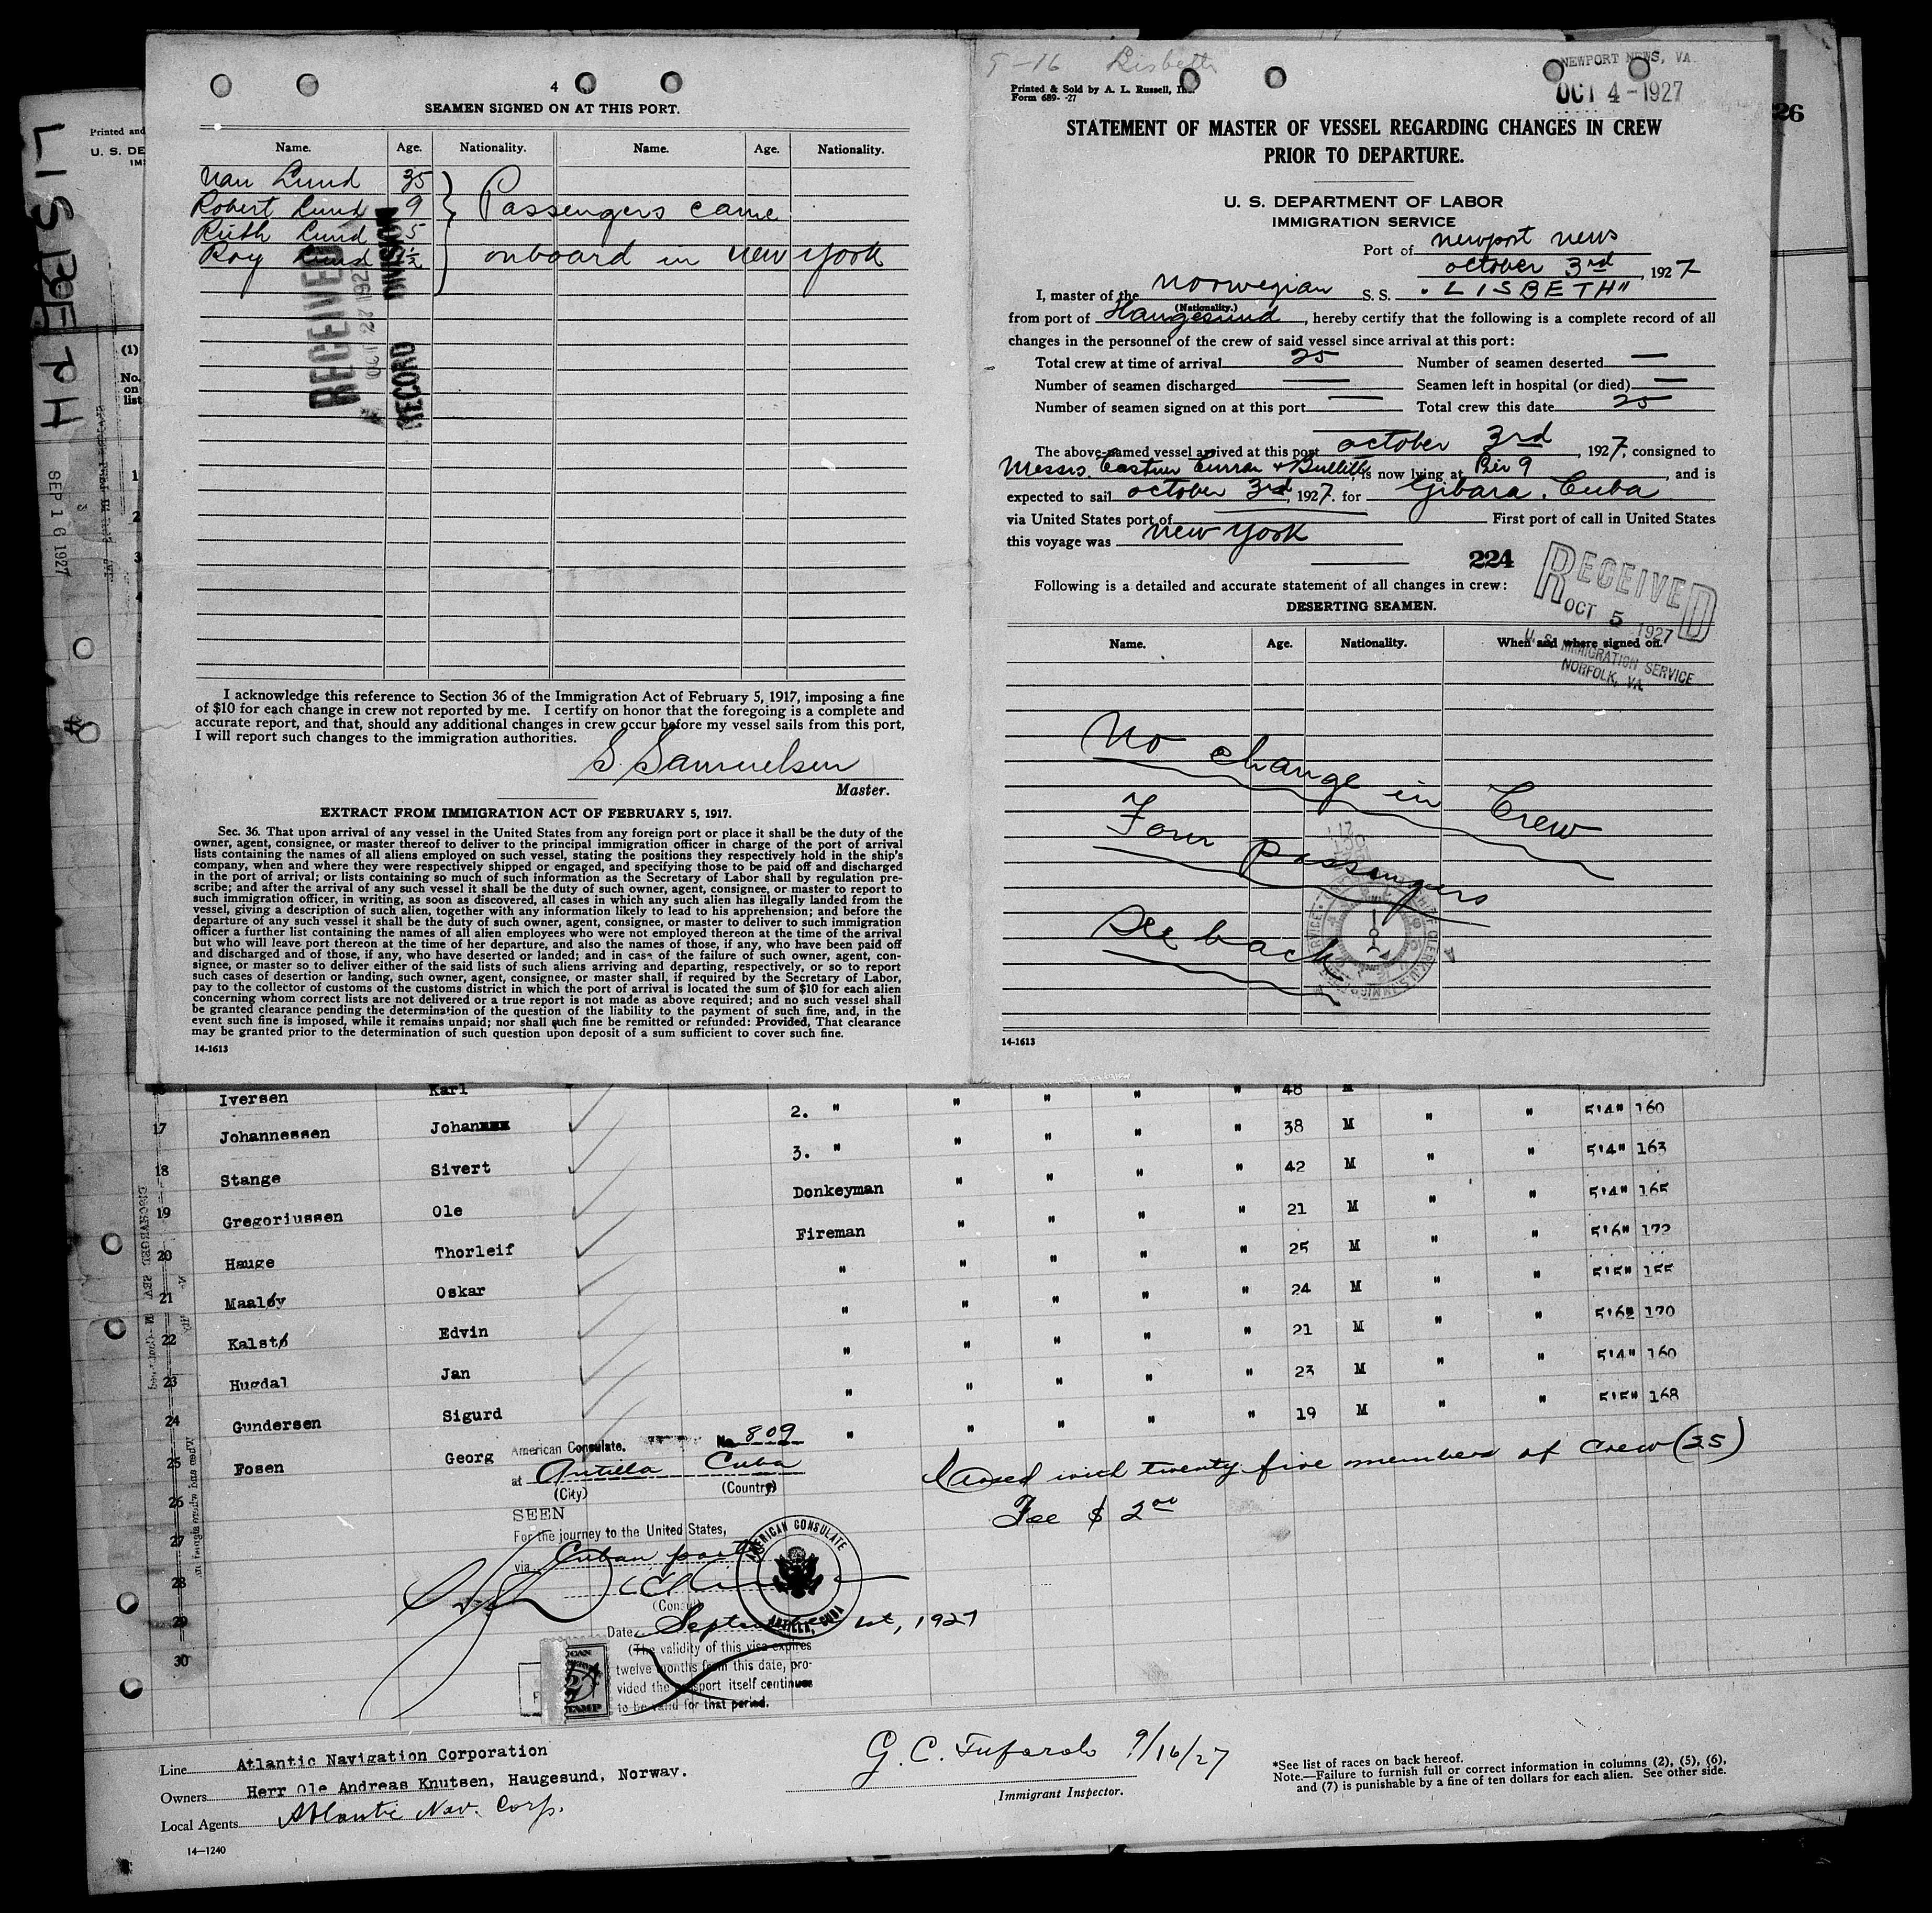 4
SEAMEN SIGNED ON AT THIS PORT.
Name. Age. Nationality. Name. Age. Nationality.
Nan Lund 35
Robert Lund 9 Passengers came
Ruth Lund 5
Roy Lund onboard in New York
RECEIVED
RECORD DIVISION
I acknowledge this reference to Section 36 of the Immigration Act of February 5, 1917, imposing a fine
of $10 for each change in crew not reported by me. I certify on honor that the foregoing is a complete and
accurate report, and that, should any additional changes in crew occur before my vessel sails from this port,
I will report such changes to the immigration authorities.
S. Samuelsen
Master.
EXTRACT FROM IMMIGRATION ACT OF FEBRUARY 5, 1917.
Sec. 36. That upon arrival of any vessel in the United States from any foreign port or place it shall be the duty of the
owner, agent, consignee, or master thereof to deliver to the principal immigration officer in charge of the port of arrival
lists containing the names of all aliens employed on such vessel, stating the positions they respectively hold in the ship's
company, when and where they were respectively shipped or engaged, and specifying those to be paid off and discharged
in the port of arrival; or lists containing so much of such information as the Secretary of Labor shall by regulation pre-
scribe; and after the arrival of any such vessel it shall be the duty of such owner, agent, consignee, or master to report to
such immigration officer, in writing, as soon as discovered, all cases in which any such alien has illegally landed from the
vessel, giving a description of such alien, together with any information likely to lead to his apprehension; and before the
departure of any such vessel it shall be the duty of such owner, agent, consignee, or master to deliver to such immigration
officer a further list containing the names of all alien employees who were not employed thereon at the time of the arrival
but who will leave port thereon at the time of her departure, and also the names of those, if any, who have been paid off
and discharged and of those, if any, who have deserted or landed; and in case of the failure of such owner, agent, con-
signee, or master so to deliver either of the said lists of such aliens arriving and departing, respectively, or so to report
such cases of desertion or landing, such owner, agent, consignee, or master shall, if required by the Secretary of Labor,
pay to the collector of customs of the customs district in which the port of arrival is located the sum of $10 for each alien
concerning whom correct lists are not delivered or a true report is not made as above required; and no such vessel shall
be granted clearance pending the determination of the question of the liability to the payment of such fine, and, in the
event such fine is imposed, while it remains unpaid; nor shall such fine be remitted or refunded: Provided, That clearance
may be granted prior to the determination of such question upon deposit of a sum sufficient to cover such fine.
14-1613
9-16 Lisbeth
NEWPORT NEWS, VA.
OCT 4-1927
Printed & Sold by A. L. Russell, Inc.
Form 689- -27
STATEMENT OF MASTER OF VESSEL REGARDING CHANGES IN CREW
PRIOR TO DEPARTURE.
U. S. DEPARTMENT OF LABOR
IMMIGRATION SERVICE
Port of Newport News
October 3rd, 1927
I, master of the Norwegian S. S. "LISBETH"
(Nationality.)
from port of Haugesund, hereby certify that the following is a complete record of all
changes in the personnel of the crew of said vessel since arrival at this port:
Total crew at time of arrival 25 Number of seamen deserted —
Number of seamen discharged — Seamen left in hospital (or died) —
Number of seamen signed on at this port — Total crew this date 25
The above-named vessel arrived at this port October 3rd, 1927, consigned to
Messrs. Castner Curran & Bullitt, is now lying at Pier 9, and is
expected to sail October 3rd, 1927. for Gibara, Cuba
via United States port of First port of call in United States
this voyage was New York
224
Following is a detailed and accurate statement of all changes in crew:
DESERTING SEAMEN.
RECEIVED
OCT 5 1927
U. S. IMMIGRATION SERVICE
NORFOLK, VA.
Name. Age. Nationality. When and where signed on.
No change in Crew
Four Passengers
See back
14-1613
26
LISBETH
SEP 16 1927
Printed and
U. S. DE
(1)
No.
on
list
Iversen Karl 2. " " " " " 48 M " " 5'4" 160
17 Johannessen Johan 3. " " " " " 38 M " " 5'4" 163
18 Stange Sivert Donkeyman " " " " 42 M " " 5'4" 165
19 Gregoriussen Ole Fireman " " " " 21 M " " 5'6" 172
20 Hauge Thorleif " " " " " 25 M " " 5'5" 155
21 Maaløy Oskar " " " " " 24 M " " 5'6" 170
22 Kalstø Edvin " " " " " 21 M " " 5'4" 160
23 Hugdal Jan " " " " " 23 M " " 5'5" 168
24 Gundersen Sigurd " " " " " 19 M
25 Fosen Georg
26
27
28
29
30
American Consulate. No. 809
at Antilla Cuba
(City) (Country)
SEEN
For the journey to the United States,
via Cuban ports
(Consul)
AMERICAN CONSULATE
ANTILLA, CUBA
Date September 1st, 1927
(The validity of this visa expires
twelve months from this date, pro-
vided the passport itself continues
to be valid for that period.
Visaed with twenty five members of Crew (25)
Fee $ 2.00
Line Atlantic Navigation Corporation
Owners Herr Ole Andreas Knutsen, Haugesund, Norway.
Local Agents Atlantic Nav. Corp.
14—1240
G. C. Tufarolo 9/16/27
Immigrant Inspector.
*See list of races on back hereof.
Note.—Failure to furnish full or correct information in columns (2), (5), (6),
and (7) is punishable by a fine of ten dollars for each alien. See other side.